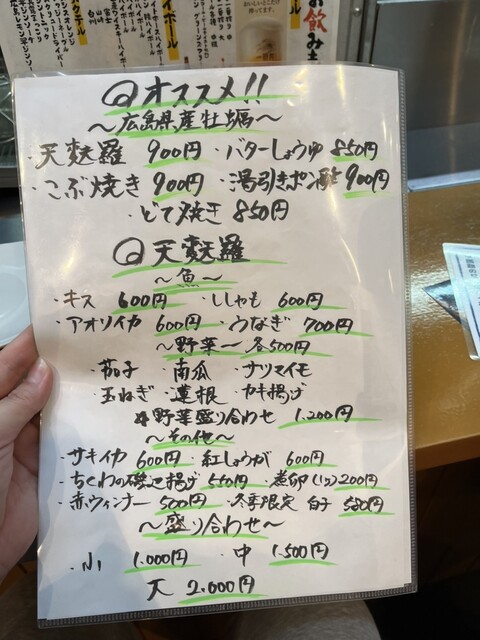 お飲み
ハイボール
◎オススメ!!
〜広島県産牡蠣〜
・天麩羅 900円 ・バターしょうゆ 850円
・こぶ焼き 900円 ・湯引きポン酢 900円
・どて焼き 850円
◎天麩羅
〜魚〜
・キス 600円 ・ししゃも 600円
・アオリイカ 600円 ・うなぎ 700円
〜野菜〜 各500円
・茄子 ・南瓜 ・サツマイモ
・玉ねぎ ・蓮根 ・カキ揚げ
野菜盛り合わせ 1,200円
〜その他〜
・サキイカ 600円 ・紅しょうが 600円
・ちくわの磯辺揚げ 550円 ・煮卵(1ヶ) 200円
・赤ウィンナー 500円 ・冬季限定 白子
〜盛り合わせ〜
・小 1,000円 ・中 1,500円
・大 2,000円